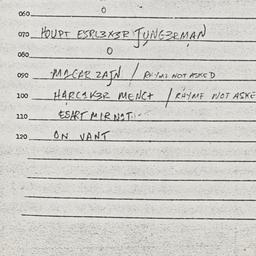 060 O
070 HOUPT ESRL3X3R JUNG3RMAN
080 O
090 MAGAR ZATN / RHYME NOT ASKED
100 HARCSK3R MENCT / RHYME NOT ASKE
110 ESART MIRNOT
120 ON VANT